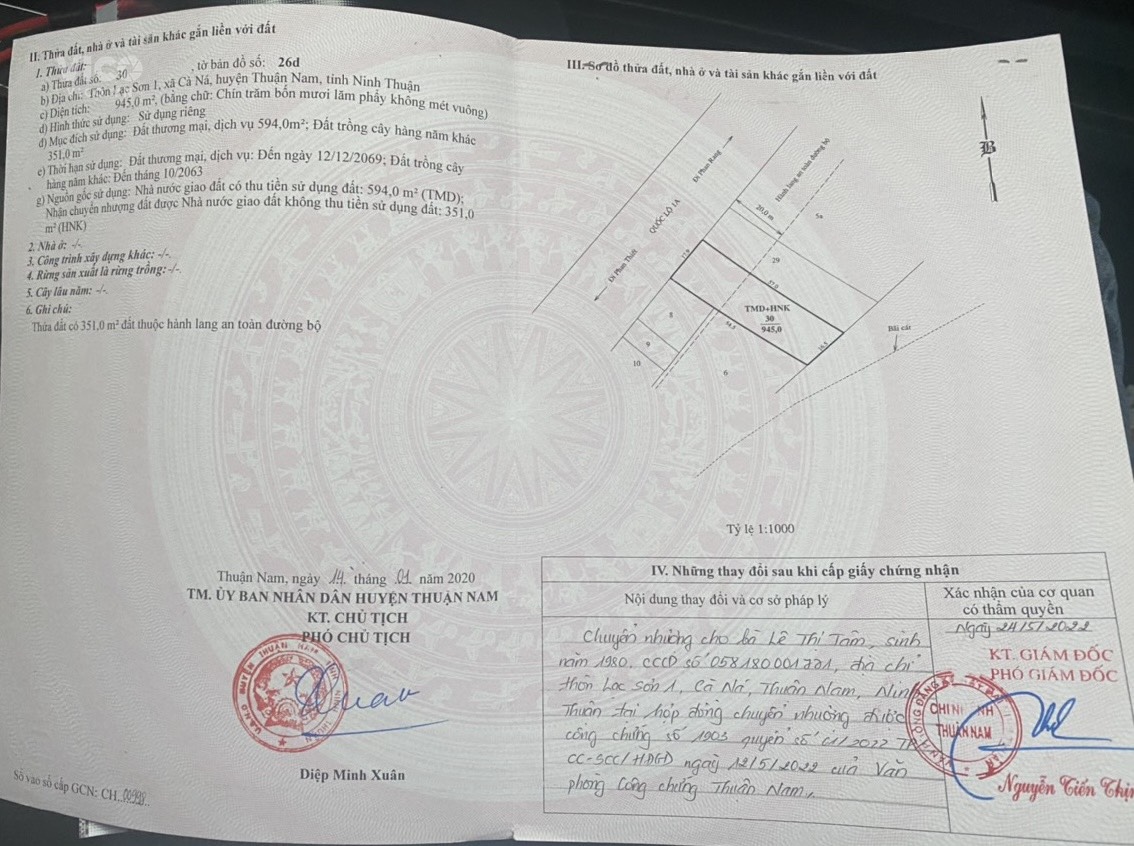 II. Thửa đất, nhà ở và tài sản khác gắn liền với đất
1. Thửa đất:
a) Thửa đất số: 30 , tờ bản đồ số: 26d
b) Địa chỉ: Thôn Lạc Sơn 1, xã Cà Ná, huyện Thuận Nam, tỉnh Ninh Thuận
c) Diện tích: 945,0 m², (bằng chữ: Chín trăm bốn mươi lăm phẩy không mét vuông)
d) Hình thức sử dụng: Sử dụng riêng
đ) Mục đích sử dụng: Đất thương mại, dịch vụ 594,0m²; Đất trồng cây hàng năm khác
351,0 m²
e) Thời hạn sử dụng: Đất thương mại, dịch vụ: Đến ngày 12/12/2069; Đất trồng cây
hàng năm khác: Đến tháng 10/2063
g) Nguồn gốc sử dụng: Nhà nước giao đất có thu tiền sử dụng đất: 594,0 m² (TMD);
Nhận chuyển nhượng đất được Nhà nước giao đất không thu tiền sử dụng đất: 351,0
m² (HNK)
2. Nhà ở: -/-.
3. Công trình xây dựng khác: -/-.
4. Rừng sản xuất là rừng trồng: -/-.
5. Cây lâu năm: -/-.
6. Ghi chú:
Thửa đất có 351,0 m² đất thuộc hành lang an toàn đường bộ
Thuận Nam, ngày 14 tháng 01 năm 2020
TM. ỦY BAN NHÂN DÂN HUYỆN THUẬN NAM
KT. CHỦ TỊCH
PHÓ CHỦ TỊCH
Diệp Minh Xuân
Số vào sổ cấp GCN: CH
III. Sơ đồ thửa đất, nhà ở và tài sản khác gắn liền với đất
B
Đi Phan Rang
QUỐC LỘ 1A
Đi Phan Thiết
Hành lang an toàn đường bộ
20.0 m
5a
29
TMD+HNK
30
945,0
8
9
10
6
Bãi cát
Tỷ lệ 1:1000
IV. Những thay đổi sau khi cấp giấy chứng nhận
Nội dung thay đổi và cơ sở pháp lý
Xác nhận của cơ quan
có thẩm quyền
Chuyển nhượng cho bà Lê Thị Tâm, sinh
năm 1980, CCCD số 058180001721, địa chỉ
thôn Lạc Sơn 1, Cà Ná, Thuận Nam, Ninh
Thuận tại hợp đồng chuyển nhượng được
công chứng số 1903 quyển số 01/2022 TP/
CC-SCC/HĐGD ngày 12/5/2022 của Văn
phòng Công chứng Thuận Nam.
Ngày 24/5/2022
KT. GIÁM ĐỐC
PHÓ GIÁM ĐỐC
CHI NHÁNH
THUẬN NAM
Nguyễn Tiến Thịnh